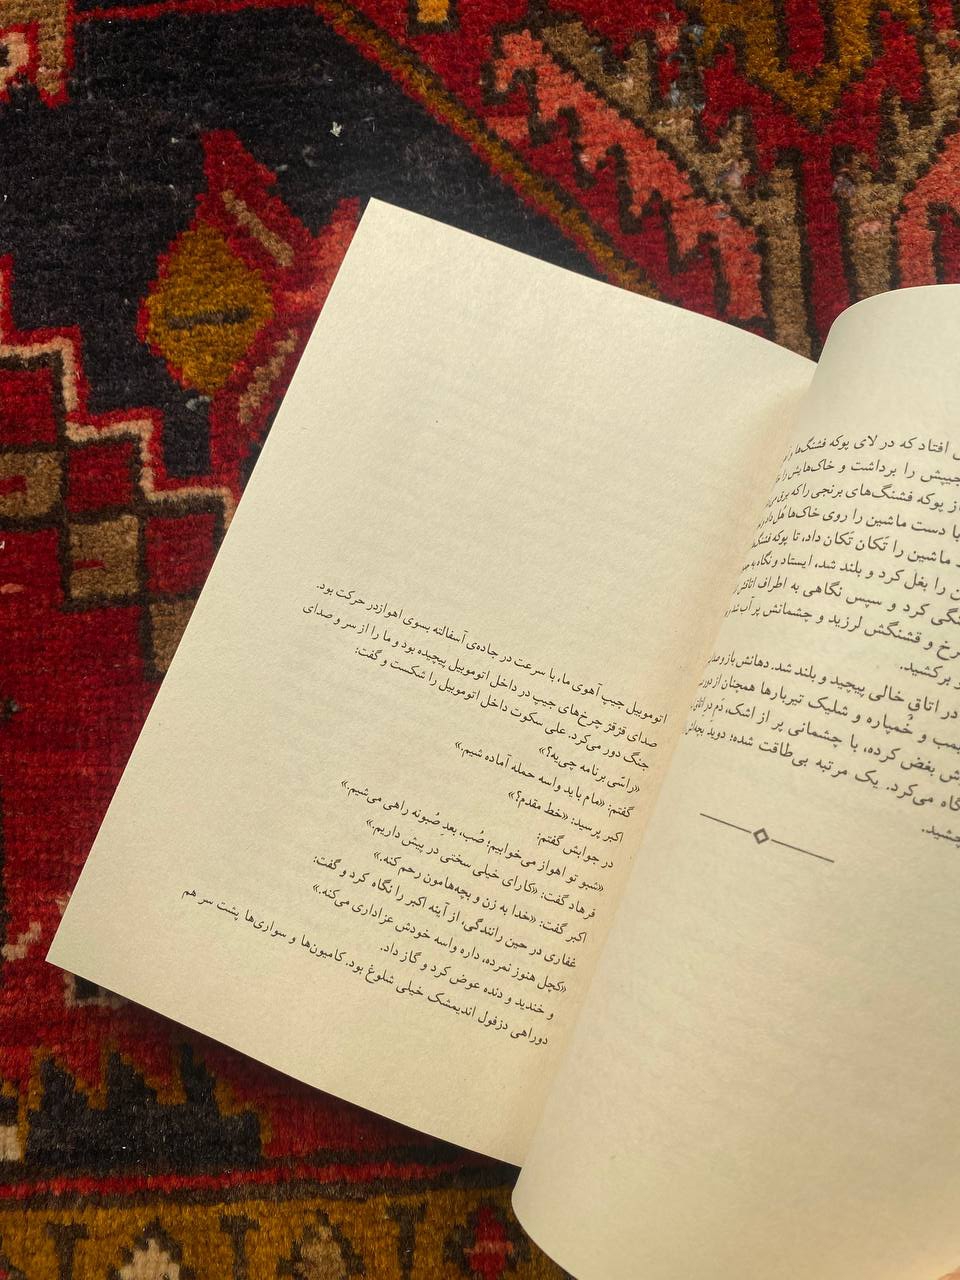 افتاد که در لای پوکه فشنگ‌ها
جیبش را برداشت و خاک‌هایش را
از پوکه فشنگ‌های برنجی را که برق
با دست ماشین را روی خاک‌ها هُل داد
ماشین را تَکان تَکان داد، تا پوکه
را بغل کرد و بلند شد، ایستاد و نگاه به
کرد و سپس نگاهی به اطراف اتاقش
و قشنگش لرزید و چشمانش پر آب شد
بر کشید.
در اتاقِ خالی پیچید و بلند شد. دهانش باز و
بمب و خُمپاره و شلیک تیربارها همچنان از دور
بغض کرده، با چشمانی پر از اشک، دَم در اتاق
می‌کرد. یک مرتبه بی‌طاقت شده؛ دوید
اتوموبیل جیپ آهوی ما، با سرعت در جاده‌ی آسفالته بسوی اهواز در حرکت بود.
صدای قِزقِز چرخ‌های جیپ در داخل اتوموبیل پیچیده بود و ما را از سر و صدای
جنگ دور می‌کرد. علی سکوت داخل اتوموبیل را شکست و گفت:
«راسّی برنامه چی‌یه؟»
گفتم: «مام باید واسه حمله آماده شیم.»
اکبر پرسید: «خط مقدم؟»
در جوابش گفتم:
«شبو تو اهواز می‌خوابیم؛ صُب، بعدِ صُبونه راهی می‌شیم.»
فرهاد گفت: «کارای خیلی سختی در پیش داریم.»
اکبر گفت: «خدا به زن و بچه‌هامون رحم کنه.»
غفاری در حین رانندگی، از آینه اکبر را نگاه کرد و گفت:
«کچل هنوز نمرده، داره واسه خودش عزاداری می‌کنه.»
و خندید و دنده عوض کرد و گاز داد.
دوراهی دزفول اندیمشک خیلی شلوغ بود. کامیون‌ها و سواری‌ها پشت سر هم